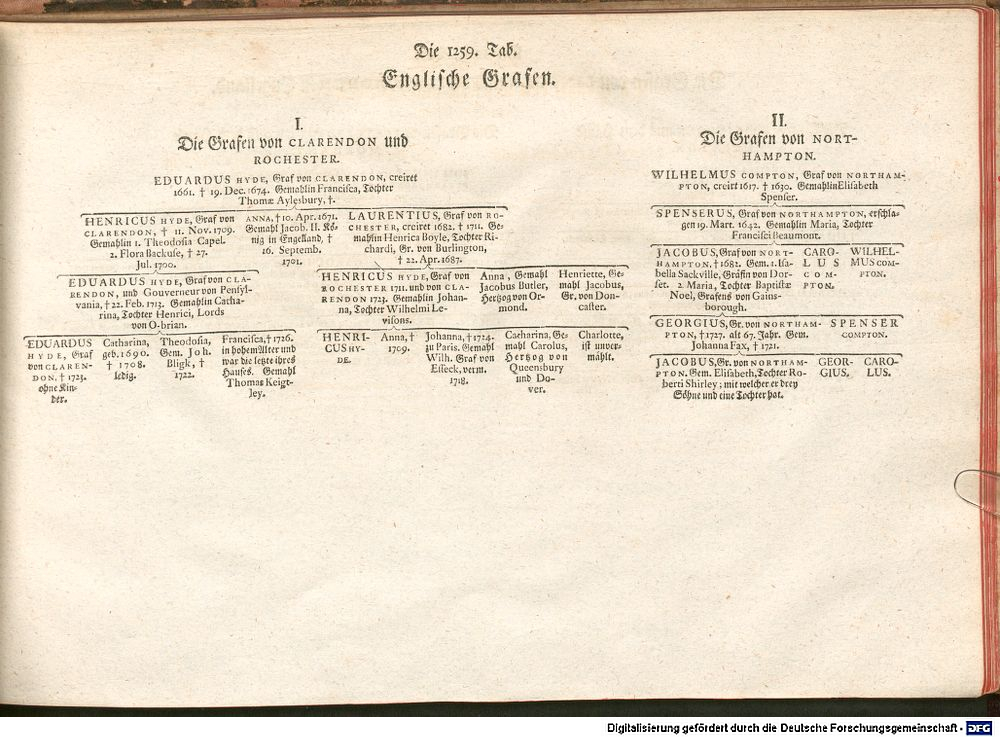 Die 1259. Tab.
Englische Grafen.
I.
Die Grafen von CLARENDON und
ROCHESTER.
EDUARDUS HYDE, Graf von CLARENDON, creiret
1661. † 19. Dec. 1674. Gemahlin Francisca, Tochter
Thomæ Aylesbury, †.
HENRICUS HYDE, Graf von
CLARENDON, † 11. Nov. 1709.
Gemahlin 1. Theodosia Capel.
2. Flora Backuse, † 27.
Jul. 1700.
ANNA, † 10. Apr. 1671.
Gemahl Jacob. II. Kö-
nig in Engelland, †
16. Septemb.
1701.
LAURENTIUS, Graf von RO-
CHESTER, creiret 1682. † 1711. Ge-
mahlin Henrica Boyle, Tochter Ri-
chardi, Gr. von Burlington,
† 22. Apr. 1687.
EDUARDUS HYDE, Graf von CLA-
RENDON, und Gouverneur von Pensyl-
vania, † 22. Feb. 1713. Gemahlin Catha-
rina, Tochter Henrici, Lords
von O-brian.
HENRICUS HYDE, Graf von
ROCHESTER 1711. und von CLA-
RENDON 1723. Gemahlin Johan-
na, Tochter Wilhelmi Le-
visons.
Anna, Gemahl
Jacobus Butler,
Hertzog von Or-
mond.
Henriette, Ge-
mahl Jacobus,
Gr. von Don-
caster.
EDUARDUS
HYDE, Graf
von CLAREN-
DON. † 1723.
ohne Kin-
der.
Catharina,
geb. 1690.
† 1708.
ledig.
Theodosia,
Gem. Joh.
Bligk, †
1722.
Francisca, † 1726.
in hohem Alter und
war die letzte ihres
Hauses. Gemahl
Thomas Keigt-
ley.
HENRI-
CUS HY-
DE.
Anna, †
1709.
Johanna, † 1724.
zu Paris. Gemahl
Wilh. Graf von
Esseck, verm.
1718.
Catharina, Ge-
mahl Carolus,
Hertzog von
Queensbury
und Do-
ver.
Charlotte,
ist unver-
mählt.
II.
Die Grafen von NORT-
HAMPTON.
WILHELMUS COMPTON, Graf von NORTHAM-
PTON, creirt 1617. † 1630. Gemahlin Elisabeth
Spenser.
SPENSERUS, Graf von NORTHAMPTON, erschla-
gen 19. Mart. 1642. Gemahlin Maria, Tochter
Francisci Beaumont.
JACOBUS, Graf von NORT-
HAMPTON, † 1682. Gem. 1. Isa-
bella Sackville, Gräfin von Dor-
set. 2. Maria, Tochter Baptistæ
Noel, Grafens von Gains-
borough.
CARO-
LUS
COM-
PTON.
WILHEL-
MUS COM-
PTON.
GEORGIUS, Gr. von NORTHAM-
PTON, † 1727. alt 67. Jahr. Gem.
Johanna Fax, † 1721.
SPENSER
COMPTON.
JACOBUS, Gr. von NORTHAM-
PTON. Gem. Elisabeth, Tochter Ro-
berti Shirley; mit welcher er drey
Söhne und eine Tochter hat.
GEOR-
GIUS.
CARO-
LUS.
Digitalisierung gefördert durch die Deutsche Forschungsgemeinschaft - DFG